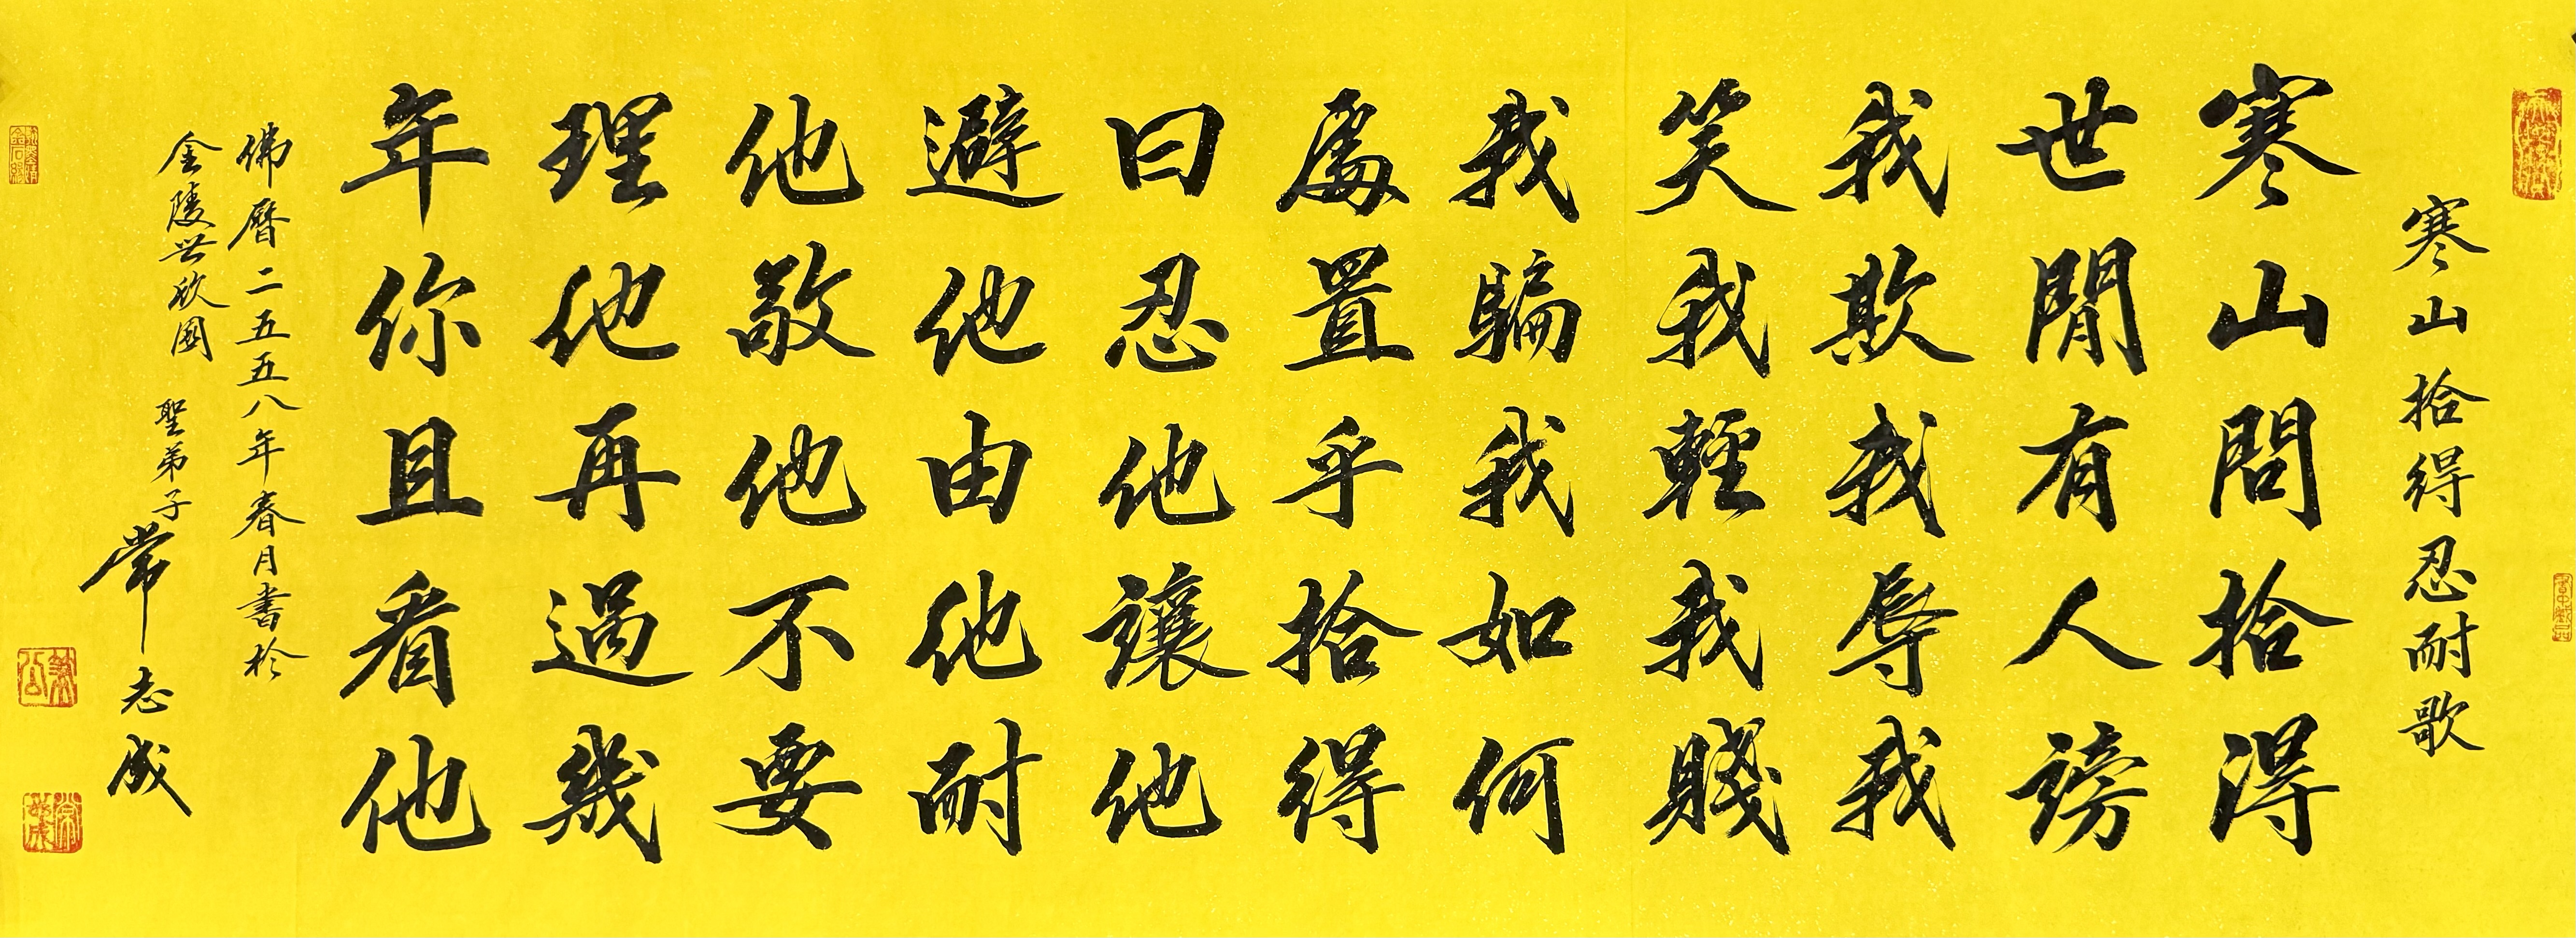 寒山拾得忍耐歌
寒山問拾得
世間有人謗
我欺我辱我
笑我輕我賤
我騙我如何
處置乎拾得
曰忍他讓他
避他由他耐
他敬他不要
理他再過幾
年你且看他
佛曆二五五八年春月書於
金陵世欣園 聖弟子常志成